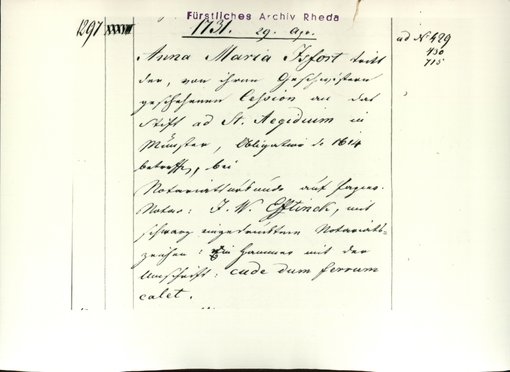 Fürstliches Archiv Rheda
1297
1731. 29. Apr.
ad N. 429
430
715
Anna Maria Isfort tritt
der, von ihren Geschwistern
geschehenen Cession an das
Stift ad St. Aegidium in
Münster, Obligation de 1614
betreffs, bei
Notariatsurkunde auf Papier.
Notar: J. W. Efftinck, mit
schwarz eingedrucktem Notariats-
zeichen: ein Hammer mit der
Umschrift: cude dum ferrum
calet.